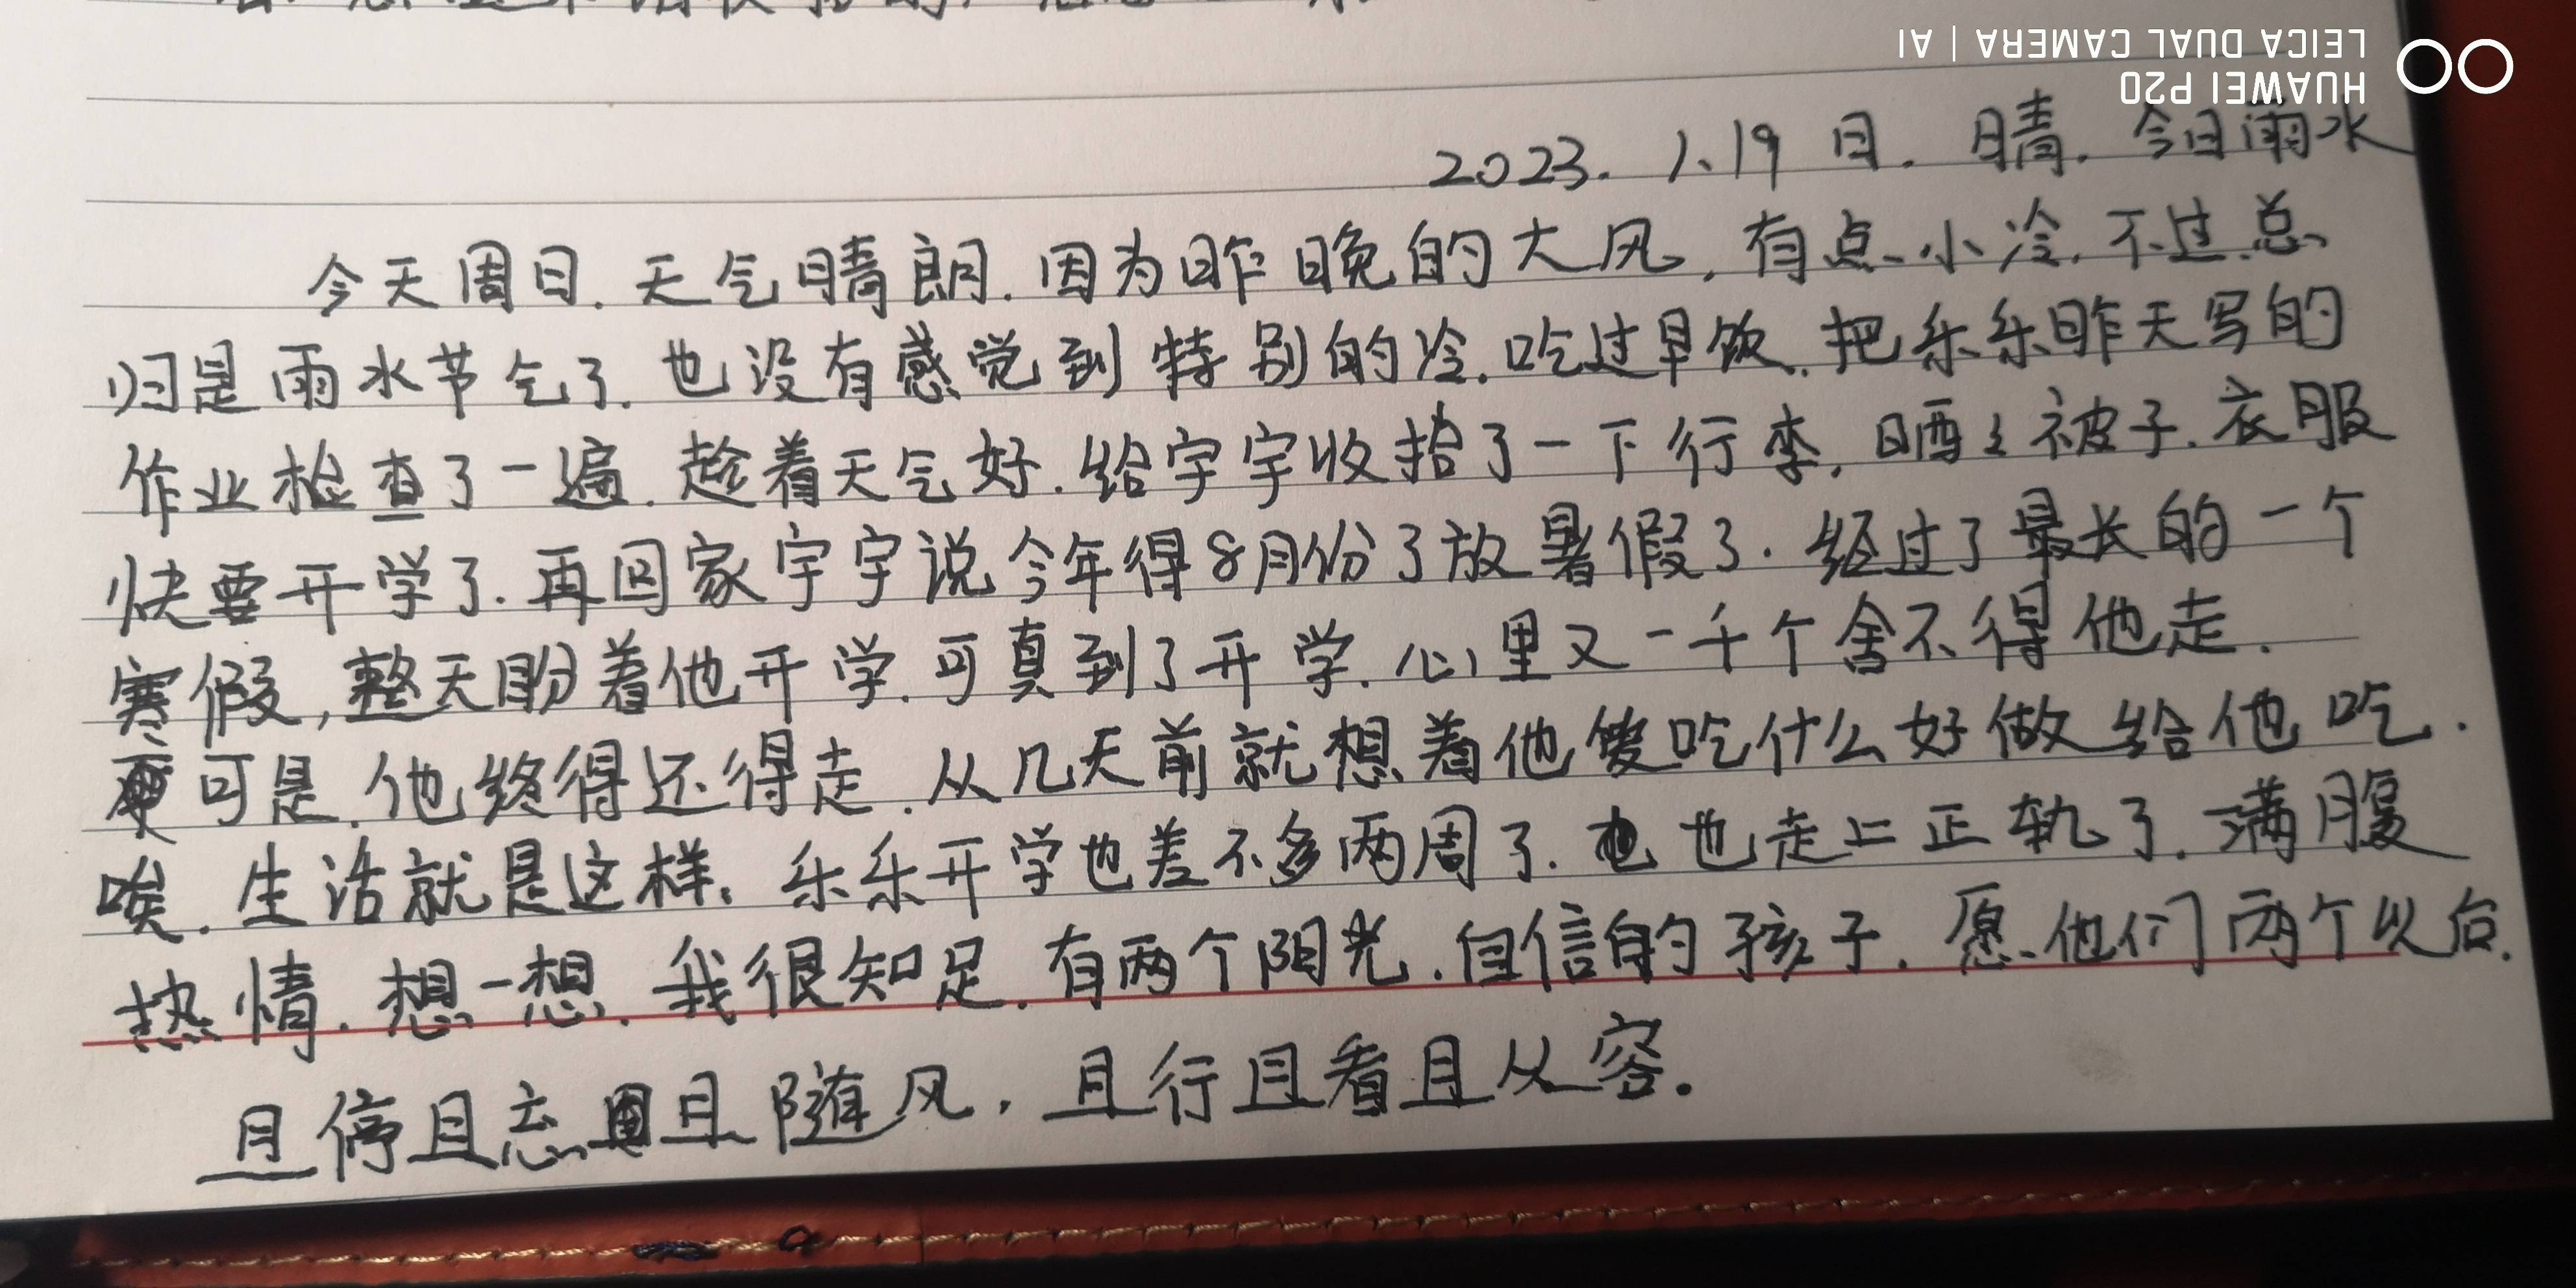 LEICA DUAL CAMERA | AI
HUAWEI P20
2023. 1.19 日. 晴. 今日雨水
今天周日. 天气晴朗. 因为昨晚的大风, 有点小冷. 不过总
归是雨水节气了. 也没有感觉到特别的冷. 吃过早饭. 把乐乐昨天写的
作业检查了一遍. 趁着天气好. 给宇宇收拾了一下行李. 晒了被子. 衣服
快要开学了. 再回家宇宇说今年得8月份了放暑假了. 经过了最长的一个
寒假, 整天盼着他开学. 可真到了开学. 心里又一千个舍不得他走.
可是. 他终得还得走. 从几天前就想着他爱吃什么好做给他吃.
唉. 生活就是这样. 乐乐开学也差不多两周了. 也走上正轨了. 满腹
热情. 想一想. 我很知足. 有两个阳光. 自信的孩子. 愿他们两个以后.
且停且忘且随风, 且行且看且从容.